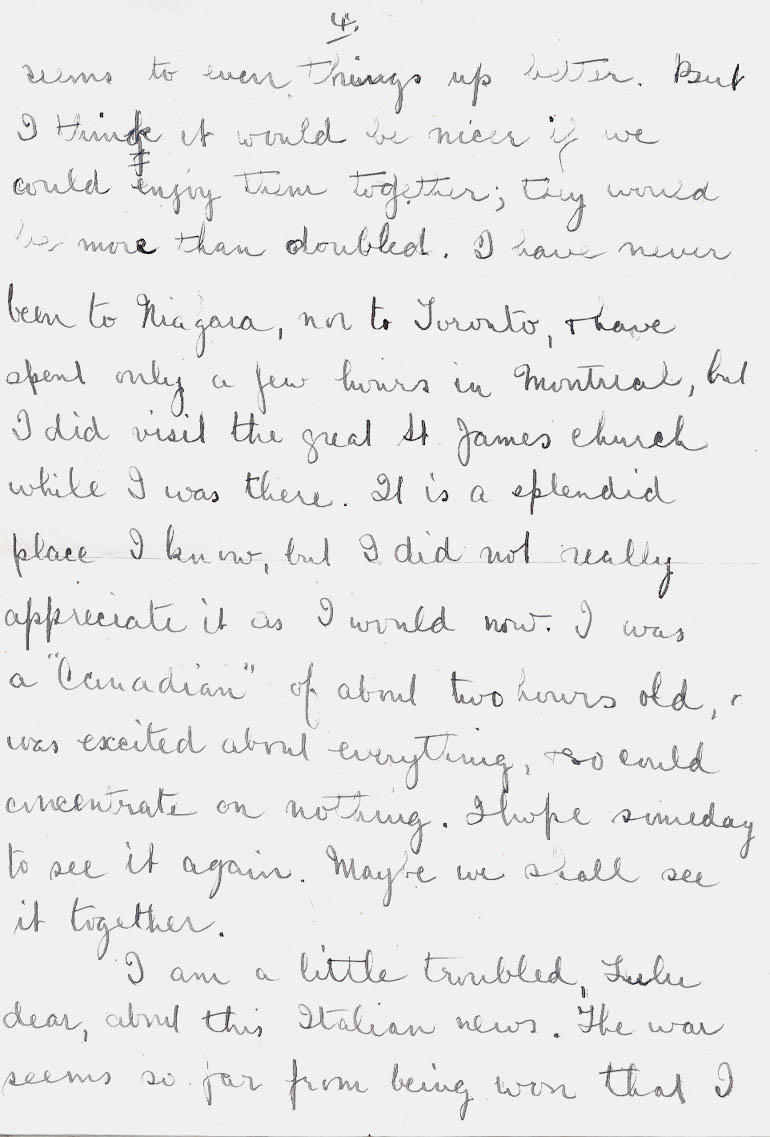 4.
seems to even things up better. But
I think it would be nicer if we
could enjoy them together; they would
be more than doubled. I have never
been to Niagara, nor to Toronto, & have
spent only a few hours in Montreal, but
I did visit the great St James church
while I was there. It is a splendid
place I know, but I did not really
appreciate it as I would now. I was
a "Canadian" of about two hours old, &
was excited about everything, & so could
concentrate on nothing. I hope someday
to see it again. Maybe we shall see
it together.
I am a little troubled, Lulu
dear, about this Italian news. The war
seems so far from being won that I